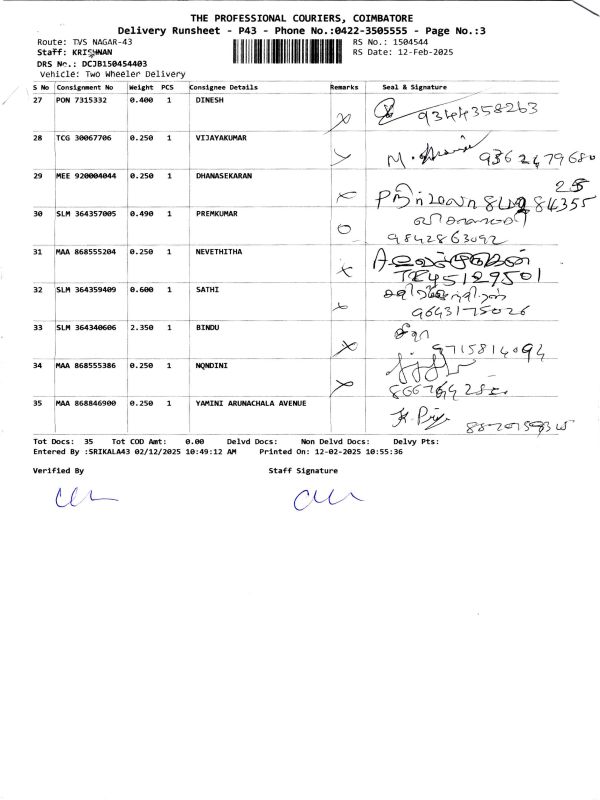 THE PROFESSIONAL COURIERS, COIMBATORE
Delivery Runsheet - P43 - Phone No.:0422-3505555 - Page No.:3
Route: TVS NAGAR-43 RS No.: 1504544
Staff: KRISHNAN RS Date: 12-Feb-2025
DRS No.: DCJB150454403
Vehicle: Two Wheeler Delivery
S No Consignment No Weight PCS Consignee Details Remarks Seal & Signature
27 PON 7315332 0.400 1 DINESH
9344358263
28 TCG 30067706 0.250 1 VIJAYAKUMAR
M. 9362479680
29 MEE 920004044 0.250 1 DHANASEKARAN
30 SLM 364357005 0.490 1 PREMKUMAR
9842863092
31 MAA 868555204 0.250 1 NEVETHITHA
32 SLM 364359409 0.600 1 SATHI
9643175026
33 SLM 364340606 2.350 1 BINDU
9715814094
34 MAA 868555386 0.250 1 NQNDINI
35 MAA 868846900 0.250 1 YAMINI ARUNACHALA AVENUE
Tot Docs: 35 Tot COD Amt: 0.00 Delvd Docs: Non Delvd Docs: Delvy Pts:
Entered By :SRIKALA43 02/12/2025 10:49:12 AM Printed On: 12-02-2025 10:55:36
Verified By Staff Signature